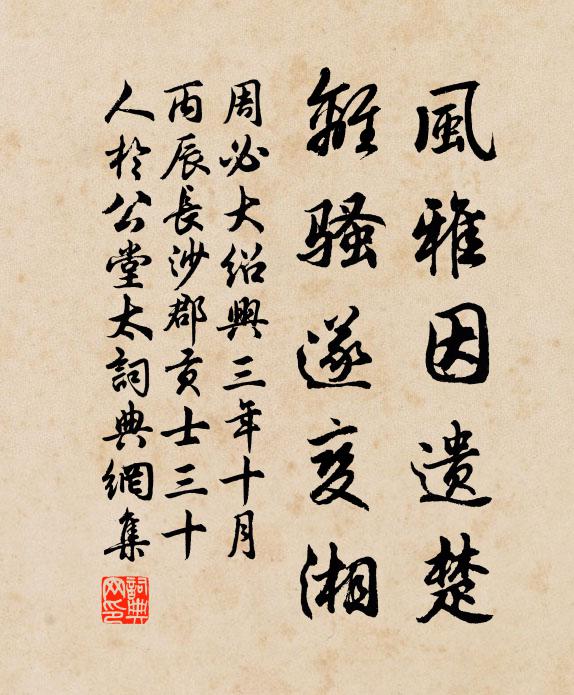 風雅因遺楚
離騷遂变湘
周必大紹興三年十月
丙辰長沙郡貢士三十
人於公堂太詞典網集
詞典网印